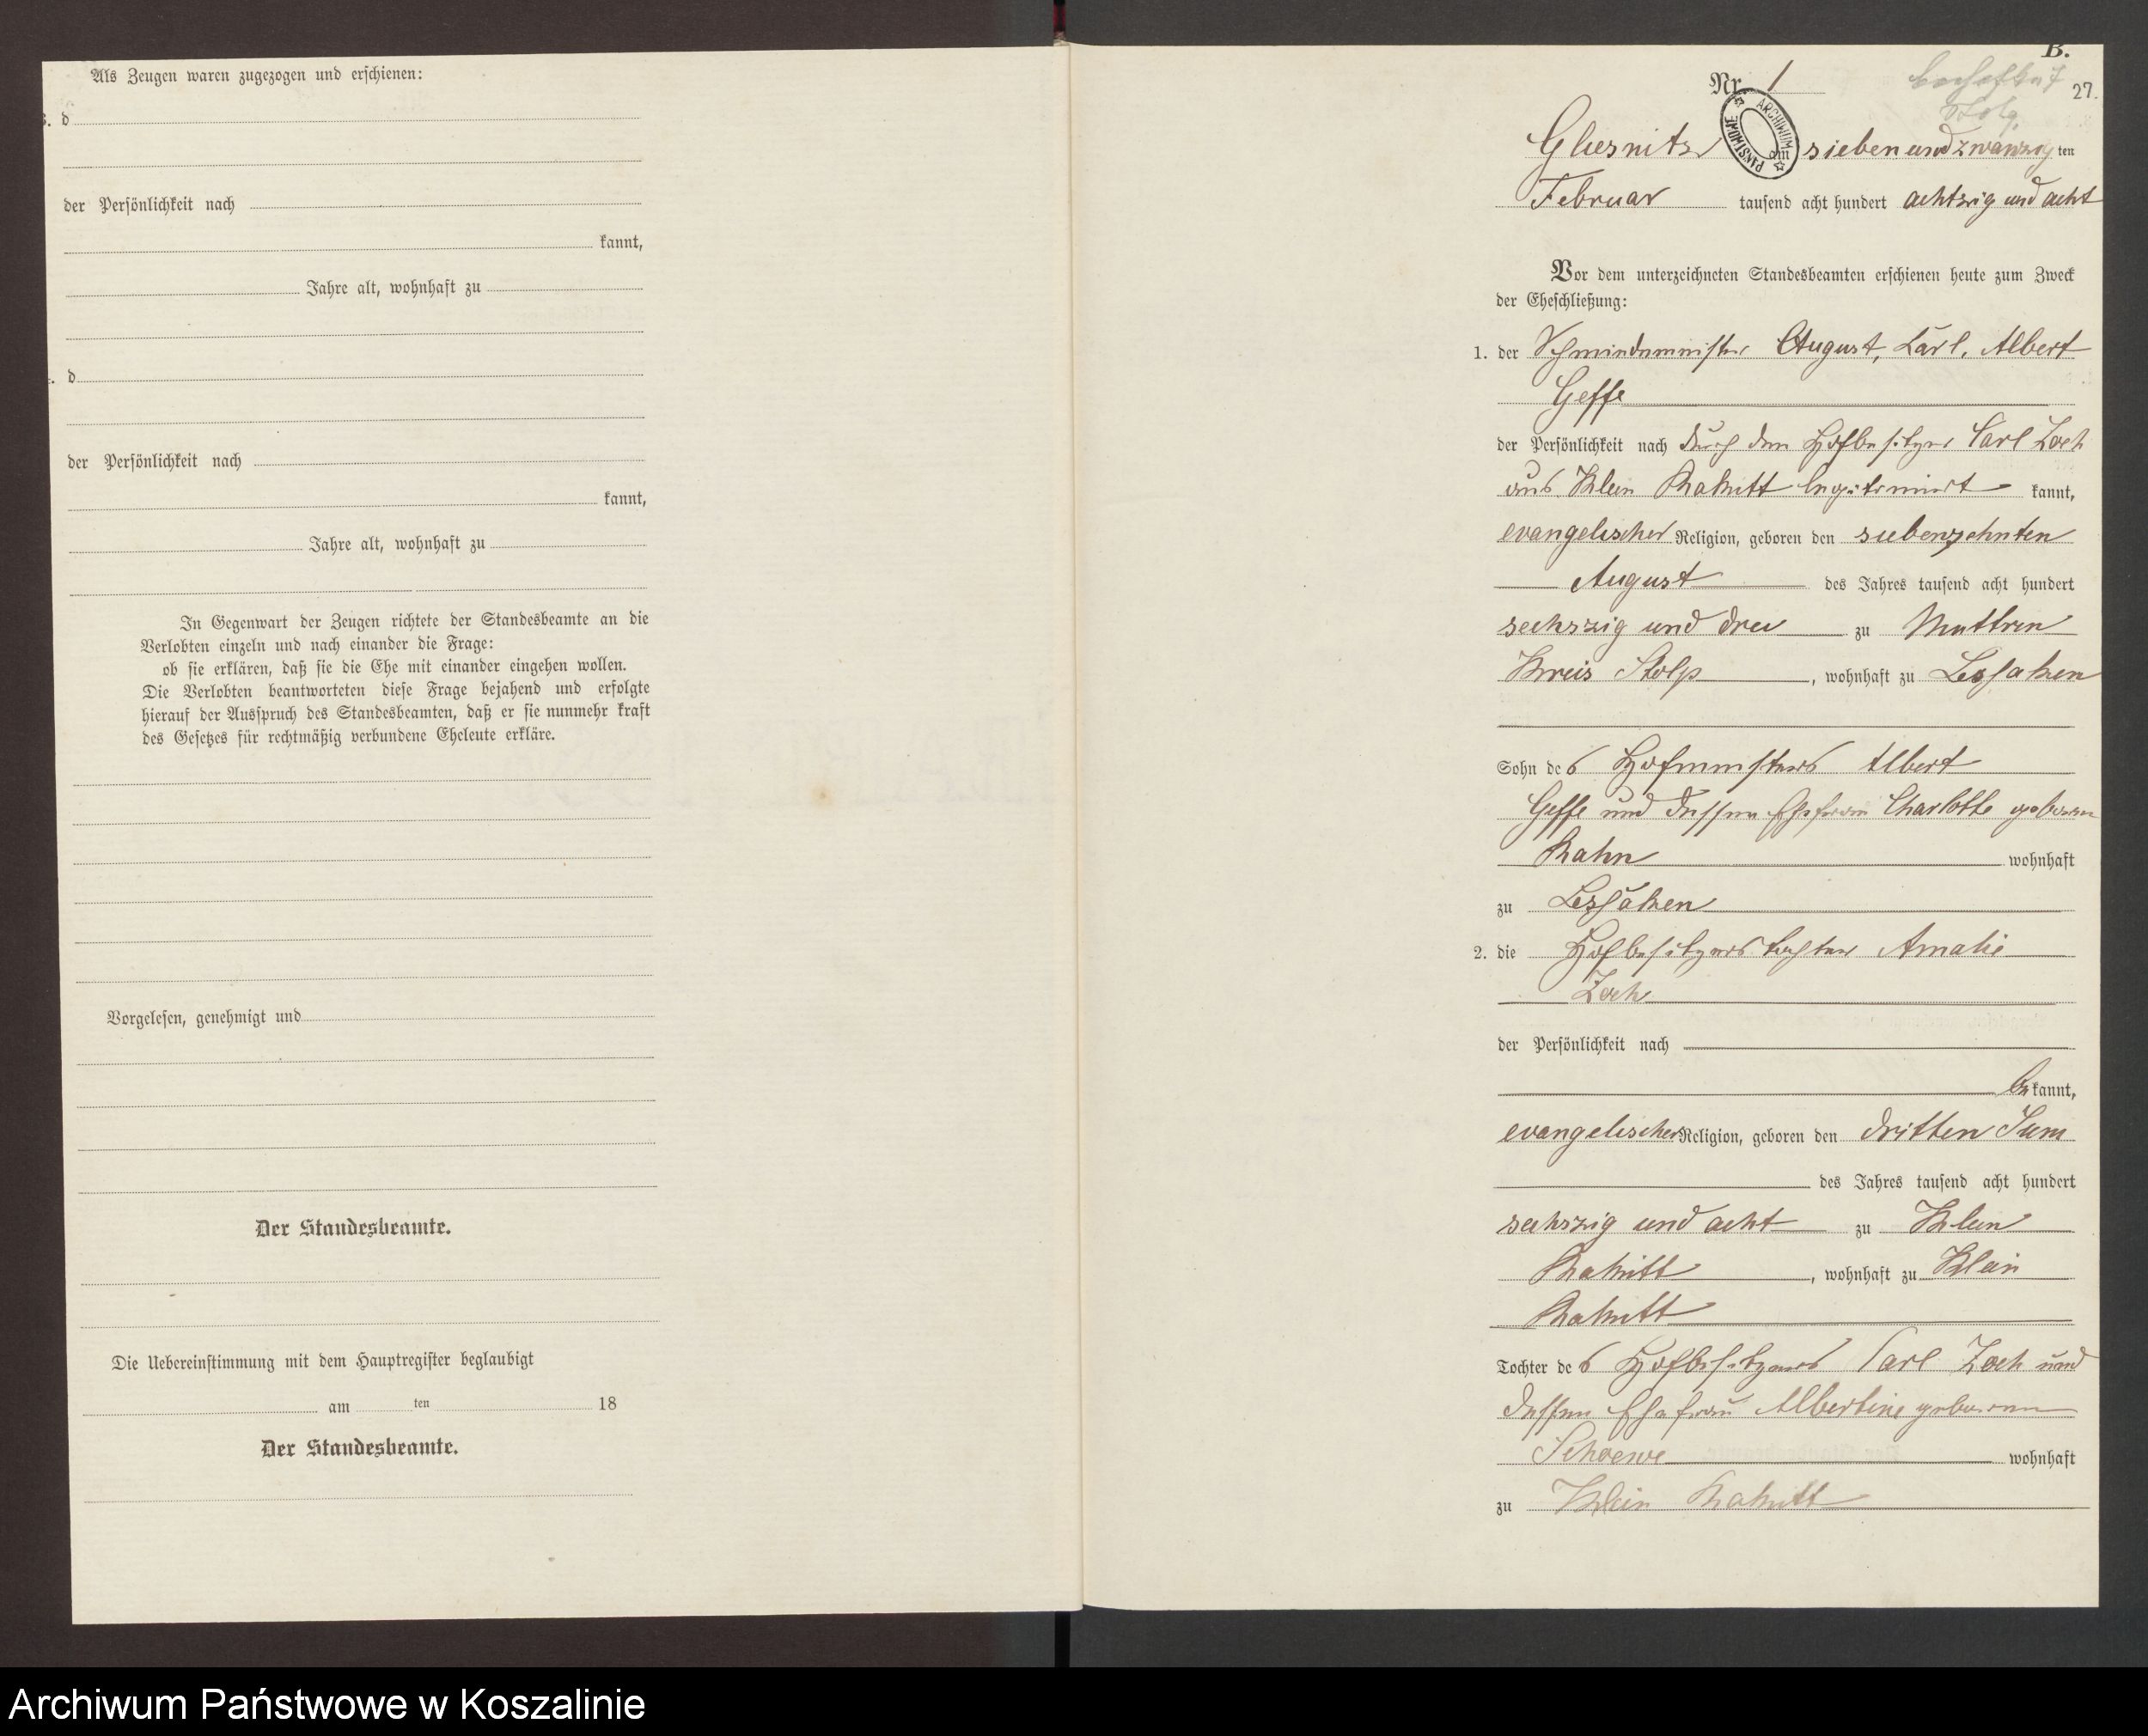 Als Zeugen waren zugezogen und erschienen:
3. d
der Persönlichkeit nach
kannt,
Jahre alt, wohnhaft zu
4. d
der Persönlichkeit nach
kannt,
Jahre alt, wohnhaft zu
In Gegenwart der Zeugen richtete der Standesbeamte an die
Verlobten einzeln und nach einander die Frage:
ob sie erklären, daß sie die Ehe mit einander eingehen wollen.
Die Verlobten beantworteten diese Frage bejahend und erfolgte
hierauf der Ausspruch des Standesbeamten, daß er sie nunmehr kraft
des Gesetzes für rechtmäßig verbundene Eheleute erkläre.
Vorgelesen, genehmigt und
Der Standesbeamte.
Die Uebereinstimmung mit dem Hauptregister beglaubigt
am ten 18
Der Standesbeamte.
B.
Nr. 1
27.
ARCHIWUM PAŃSTWOWE
Gliesnitz am siebenundzwanzig ten
Februar tausend acht hundert achtzig und acht
Vor dem unterzeichneten Standesbeamten erschienen heute zum Zweck
der Eheschließung:
1. der Schmiedemeister August, Carl, Albert
Geffe
der Persönlichkeit nach durch den Hofbesitzer Carl Zoch
aus Klein Rakitt legitimirt kannt,
evangelischer Religion, geboren den siebenzehnten
August des Jahres tausend acht hundert
sechszig und drei zu Muttrin
Kreis Stolp, wohnhaft zu Lessaken
Sohn des Hofmeisters Albert
Geffe und dessen Ehefrau Charlotte geboren
Rahn wohnhaft
zu Lessaken
2. die Hofbesitzerstochter Amalie
Zoch
der Persönlichkeit nach
bekannt,
evangelischer Religion, geboren den dritten Juni
des Jahres tausend acht hundert
sechszig und acht zu Klein
Rakitt, wohnhaft zu Klein
Rakitt
Tochter des Hofbesitzers Carl Zoch und
dessen Ehefrau Albertine geborenen
Schoewe wohnhaft
zu Klein Rakitt
Archiwum Państwowe w Koszalinie